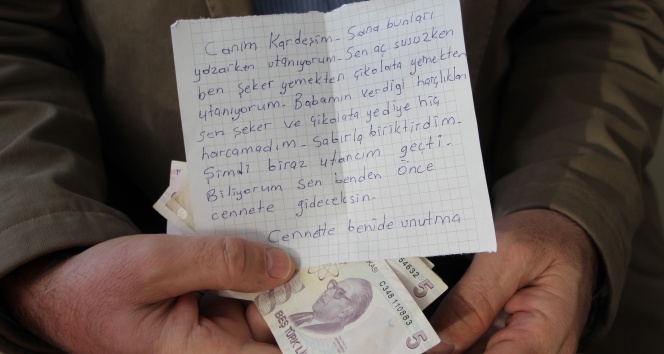 Canım Kardeşim- Sana bunları
yazarken utanıyorum- Sen aç susuzken
ben şeker yemekten çikolata yemekten
utanıyorum- Babamın verdiği harçlıkları
şen şeker ve çikolata yediye hiç
harcamadım- Sabırla biriktirdim-
Şimdi biraz utancım geçti-
Biliyorum sen benden önce
cennete gideceksin-
Cennette benide unutma
C348110883
64632
5
5
BEŞ TÜRK Lİ